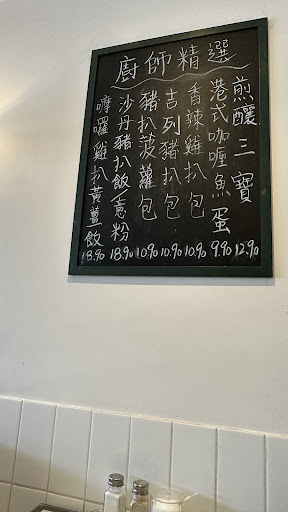 廚師精選
煎釀三寶 12.90
港式咖喱魚蛋 9.90
香辣雞扒包 10.90
吉列豬扒包 10.90
豬扒菠蘿包 10.90
沙丹豬扒飯/意粉 18.90
嚤囉雞扒黃薑飯 18.90